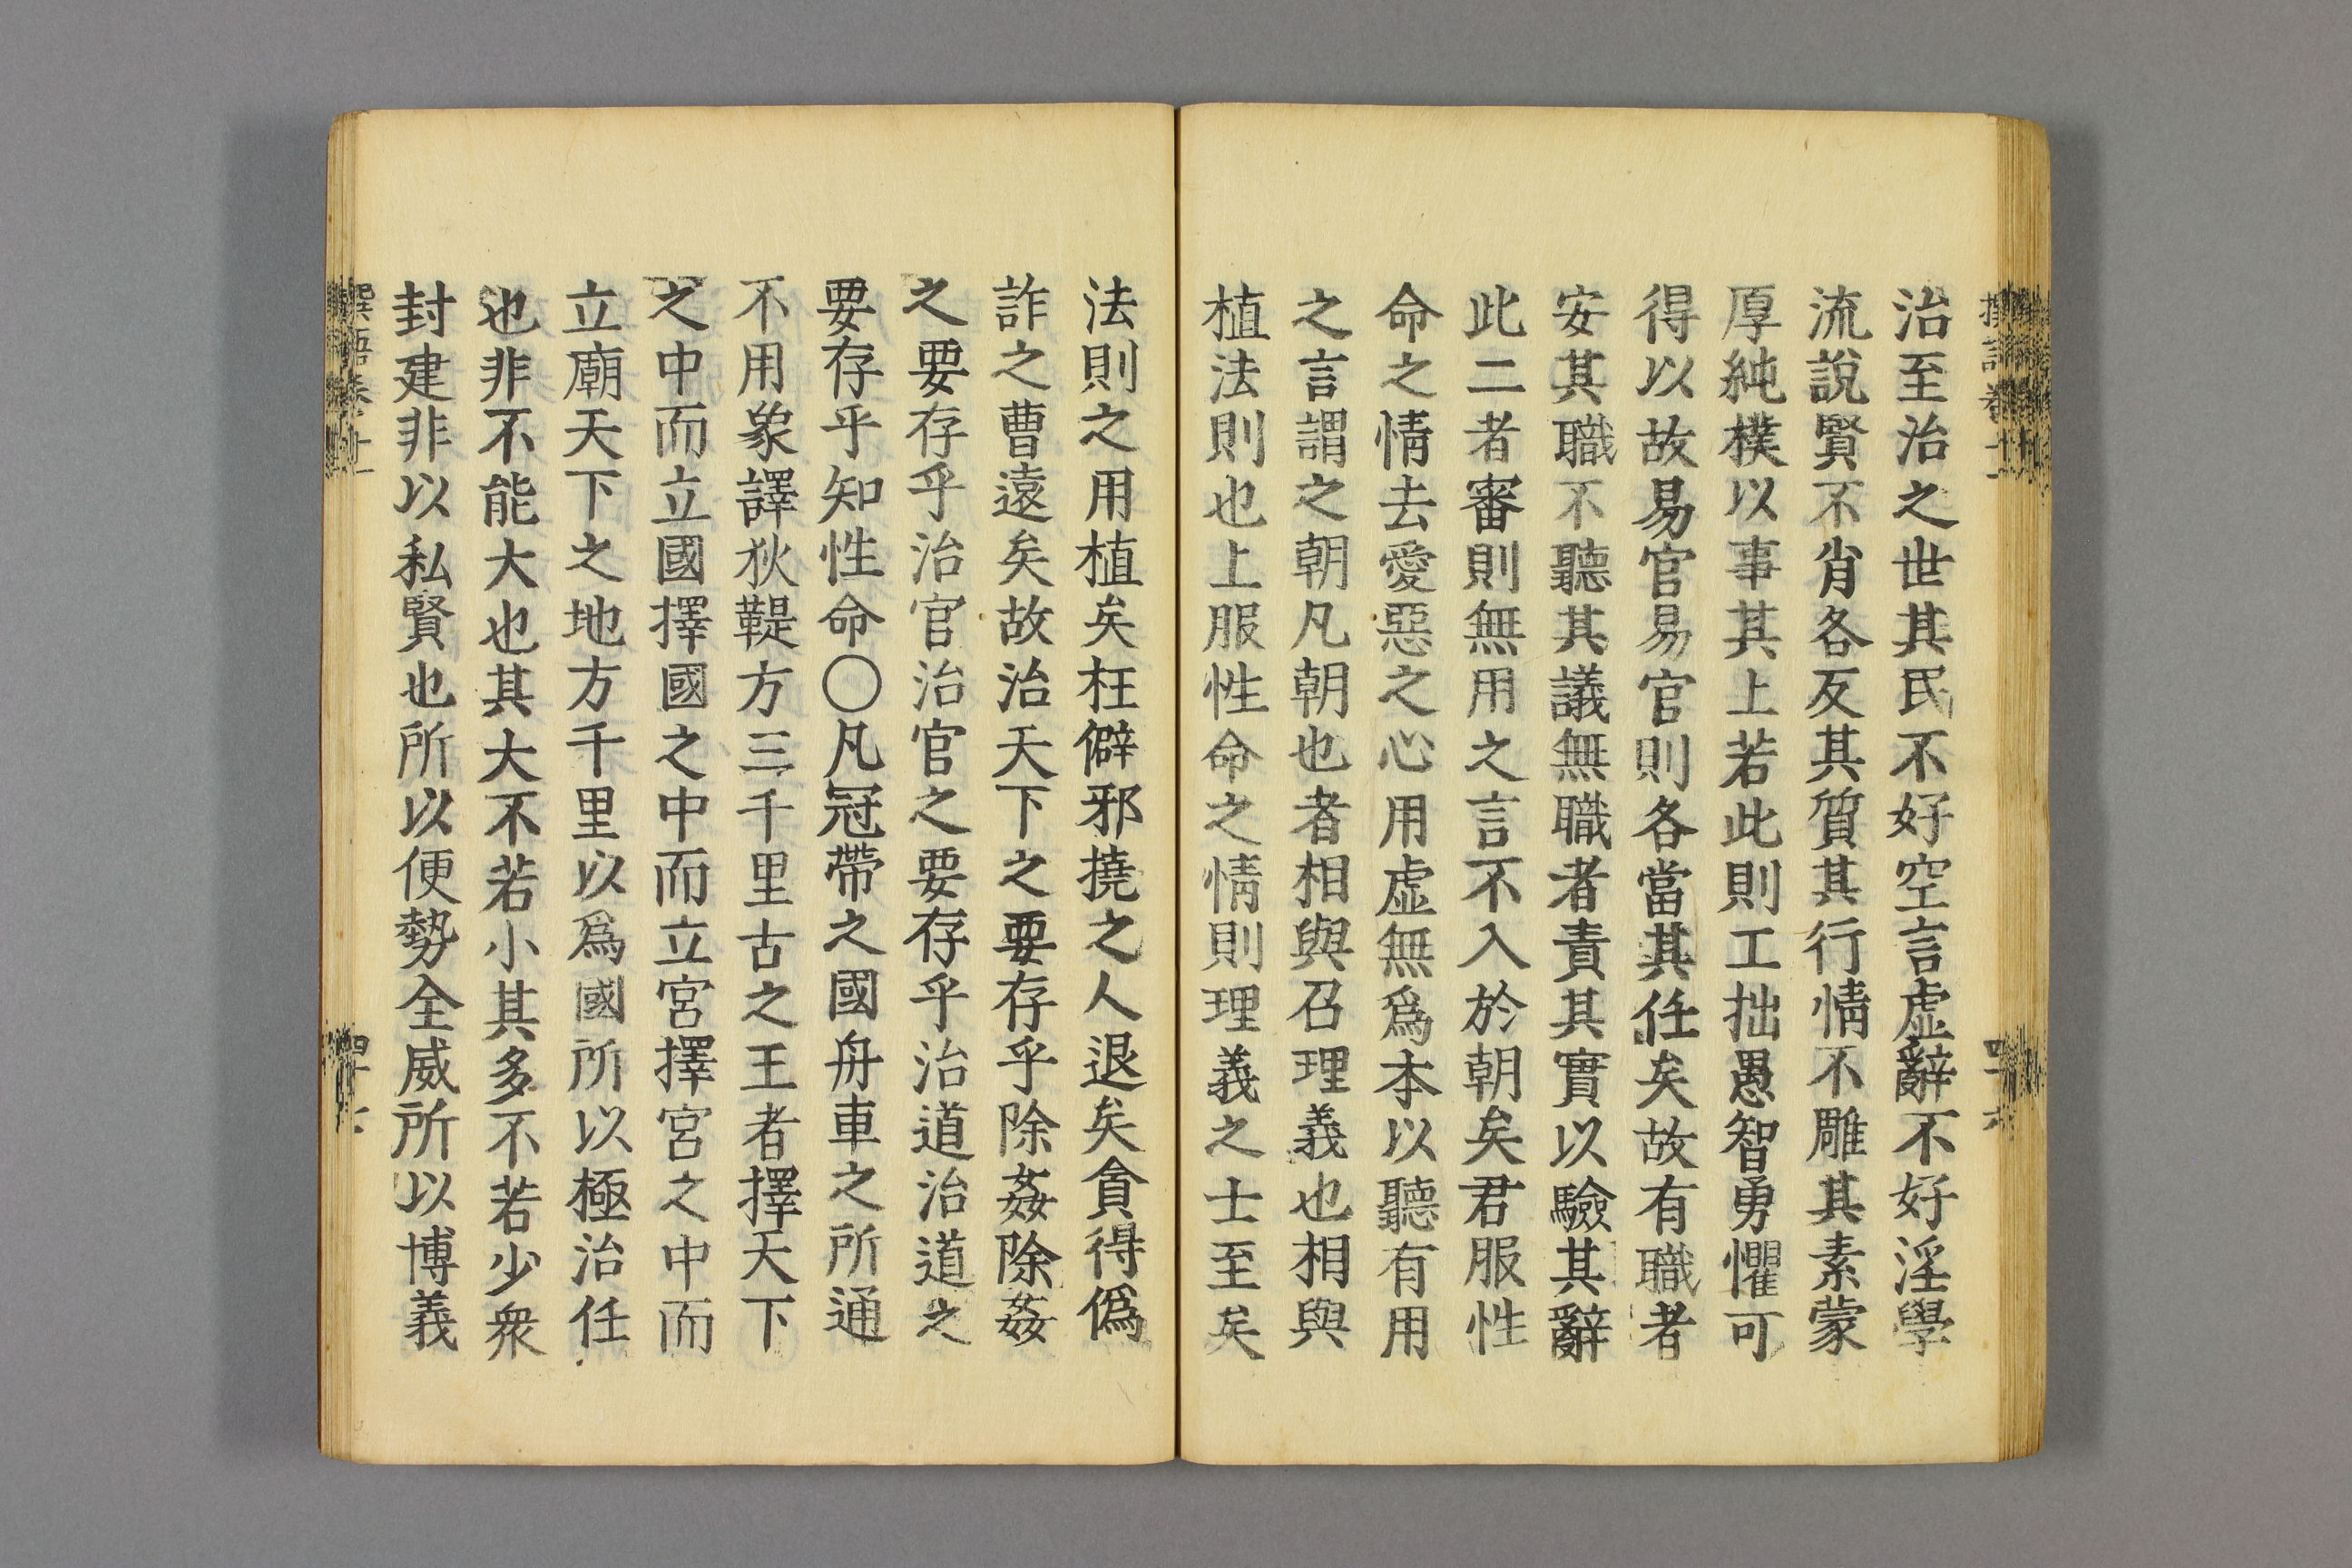 治至治之世其民不好空言虛辭不好淫學
流說賢不肖各反其質其行情不雕其素蒙
厚純樸以事其上若此則工拙愚智勇懼可
得以故易官易官則各當其任矣故有職者
安其職不聽其議無職者責其實以驗其辭
此二者審則無用之言不入於朝矣君服性
命之情去愛惡之心用虛無爲本以聽有用
之言謂之朝凡朝也者相與召理義也相與
植法則也上服性命之情則理義之士至矣
法則之用植矣枉僻邪撓之人退矣貪得僞
詐之曹遠矣故治天下之要存乎除姦除姦
之要存乎治官治官之要存乎治道治道之
要存乎知性命〇凡冠帶之國舟車之所通
不用象譯狄鞮方三千里古之王者擇天下
之中而立國擇國之中而立宮擇宮之中而
立廟天下之地方千里以爲國所以極治任
也非不能大也其大不若小其多不若少衆
封建非以私賢也所以便勢全威所以博義